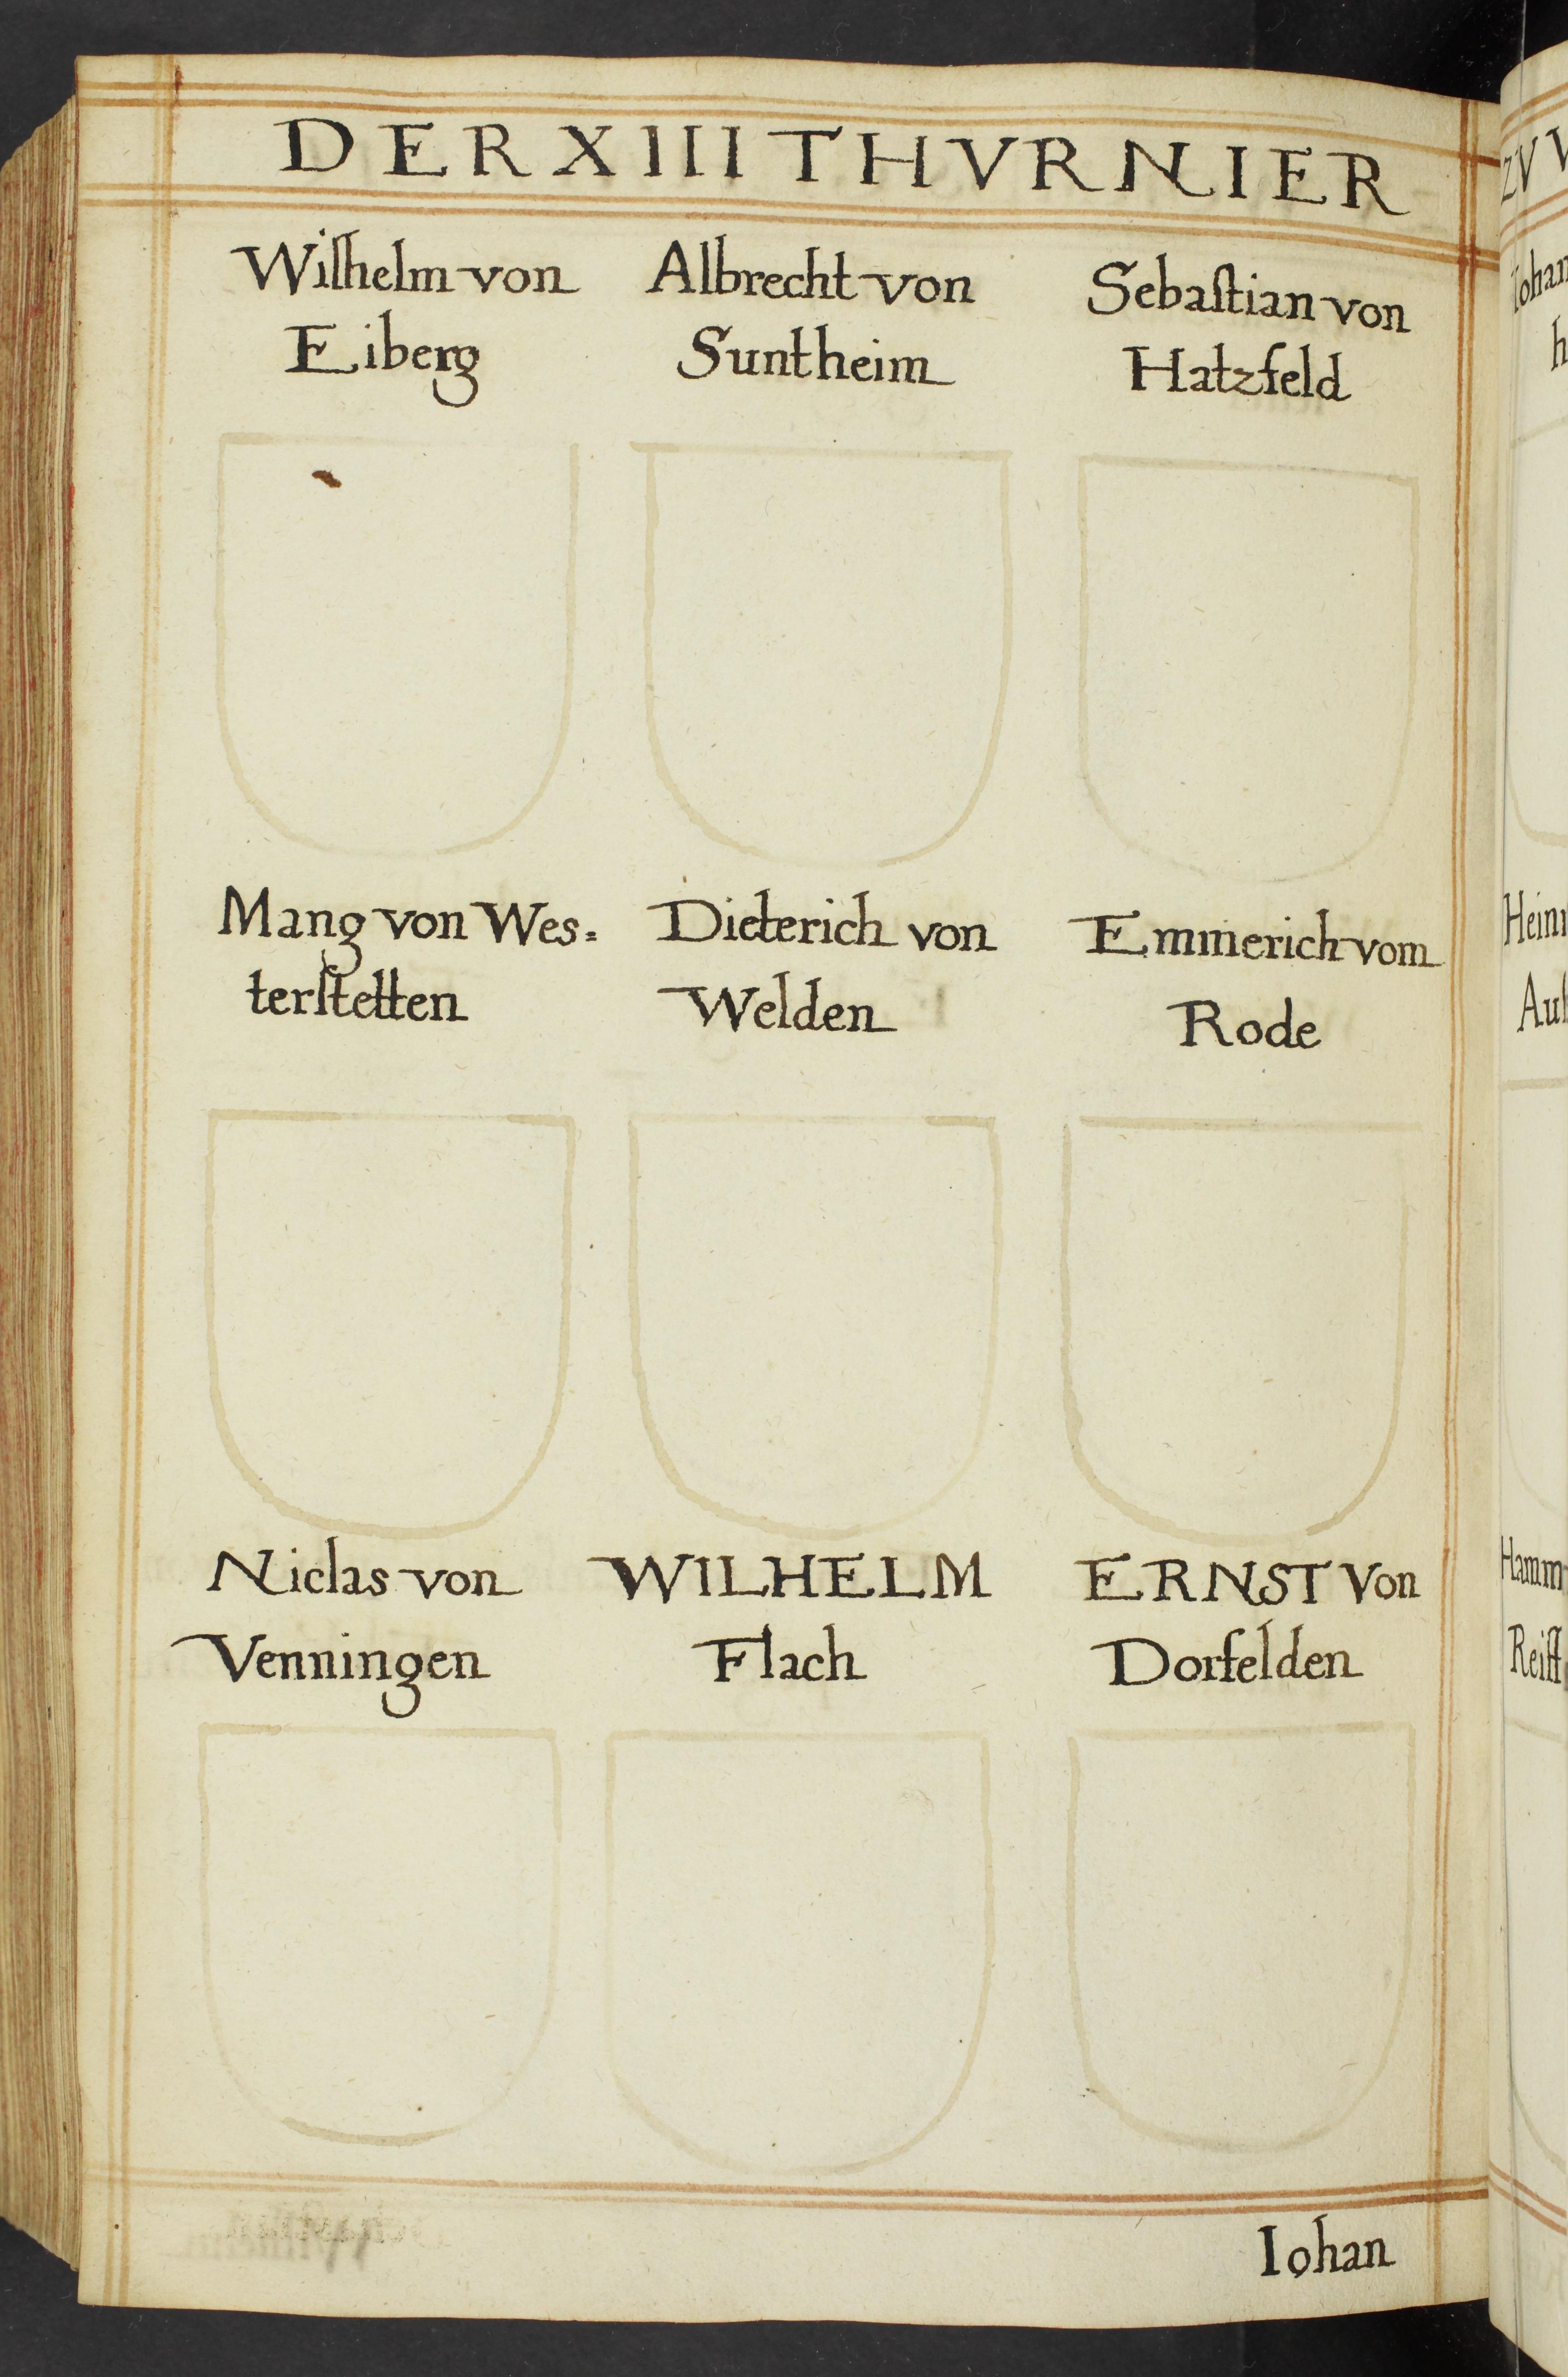 DER XIII THVRNIER
Wilhelm von
Eiberg
Albrecht von
Suntheim
Sebaſtian von
Hatzfeld
Mang von Wes=
terſtetten
Dieterich von
Welden
Emmerich vom
Rode
Niclas von
Venningen
WILHELM
Flach
ERNST Von
Dorfelden
Iohan
ZV